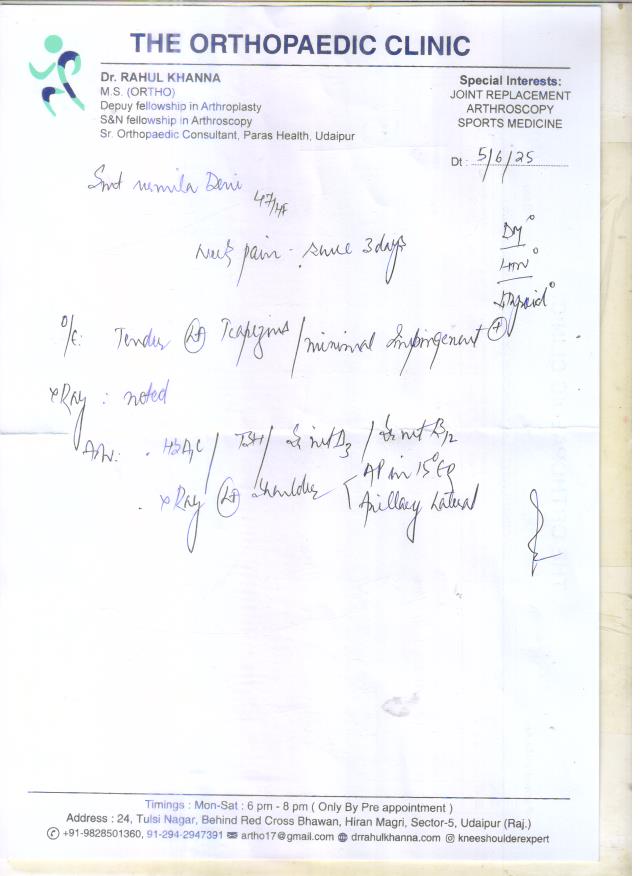 THE ORTHOPAEDIC CLINIC
Dr. RAHUL KHANNA
M.S. (ORTHO)
Depuy fellowship in Arthroplasty
S&N fellowship in Arthroscopy
Sr. Orthopaedic Consultant, Paras Health, Udaipur
Special Interests:
JOINT REPLACEMENT
ARTHROSCOPY
SPORTS MEDICINE
Dt : 5/6/25
Smt Devi
Neck pain - since 3 days
DM°
HTN°
Thyroid°
O/E: Tender Lt Trapezius / minimal Impingement +
xRay : noted
Adv: . HbA1C / TSH / Sr vit D3 / Sr vit B12
. xRay Lt Shoulder AP in 15°
Axillary Lateral
Timings : Mon-Sat : 6 pm - 8 pm ( Only By Pre appointment )
Address : 24, Tulsi Nagar, Behind Red Cross Bhawan, Hiran Magri, Sector-5, Udaipur (Raj.)
+91-9828501360, 91-294-2947391 artho17@gmail.com drrahulkhanna.com kneeshoulderexpert